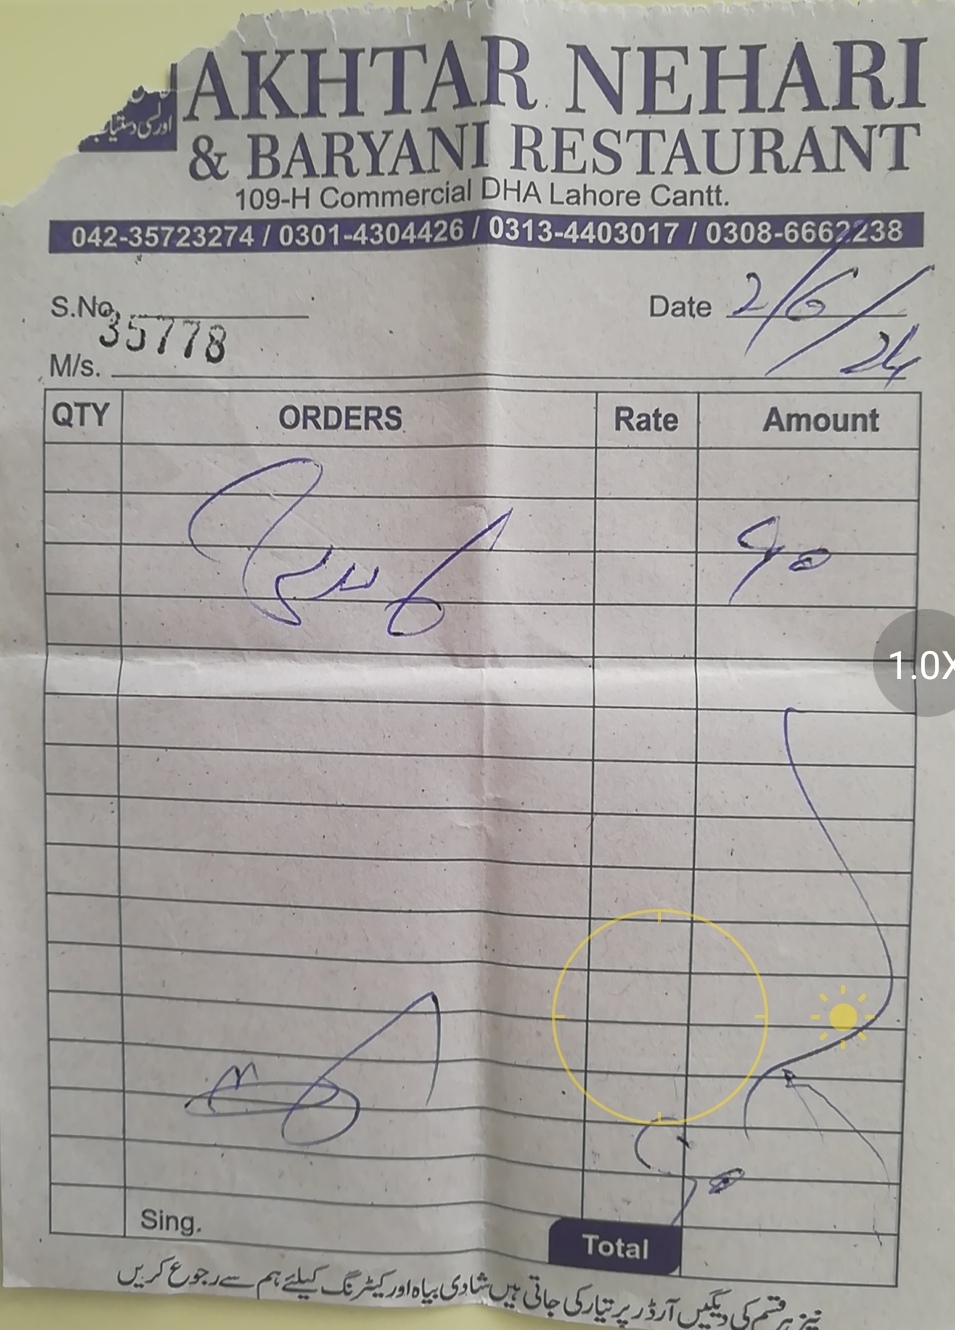 اور کی دستیاب
AKHTAR NEHARI
& BARYANI RESTAURANT
109-H Commercial DHA Lahore Cantt.
042-35723274 / 0301-4304426 / 0313-4403017 / 0308-6662238
S.No. 35778
Date 2/6/24
M/s.
QTY ORDERS Rate Amount
90
Sing.
Total
نیز ہر قسم کی دیگیں آرڈر پر تیار کی جاتی ہیں شادی بیاہ اور کیٹرنگ کیلئے ہم سے رجوع کریں
1.0X